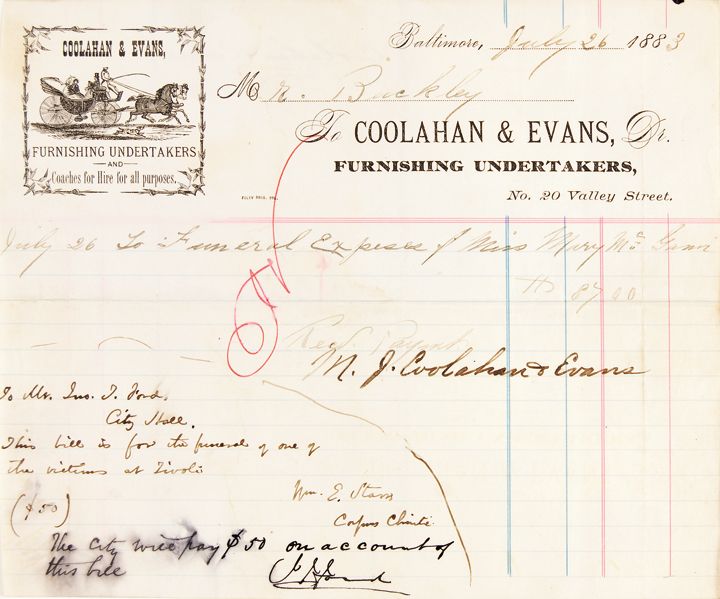 COOLAHAN & EVANS,
FURNISHING UNDERTAKERS
AND
Coaches for Hire for all purposes.
Baltimore, July 26 1883
Mr. Buckley
To COOLAHAN & EVANS, Dr.
FURNISHING UNDERTAKERS,
No. 20 Valley Street.
July 26 To Funeral Expeses of Miss Mary Mc
$ 87 00
Recd. Paymt
M. J. Coolahan & Evans
To Mr. Jno. T. Ford.
City Hall.
This bill is for the funeral of one of
the victims at Tivoli
($50)
Wm. E. Starr
Corpus Christi
The City will pay $50 on account of
this bill